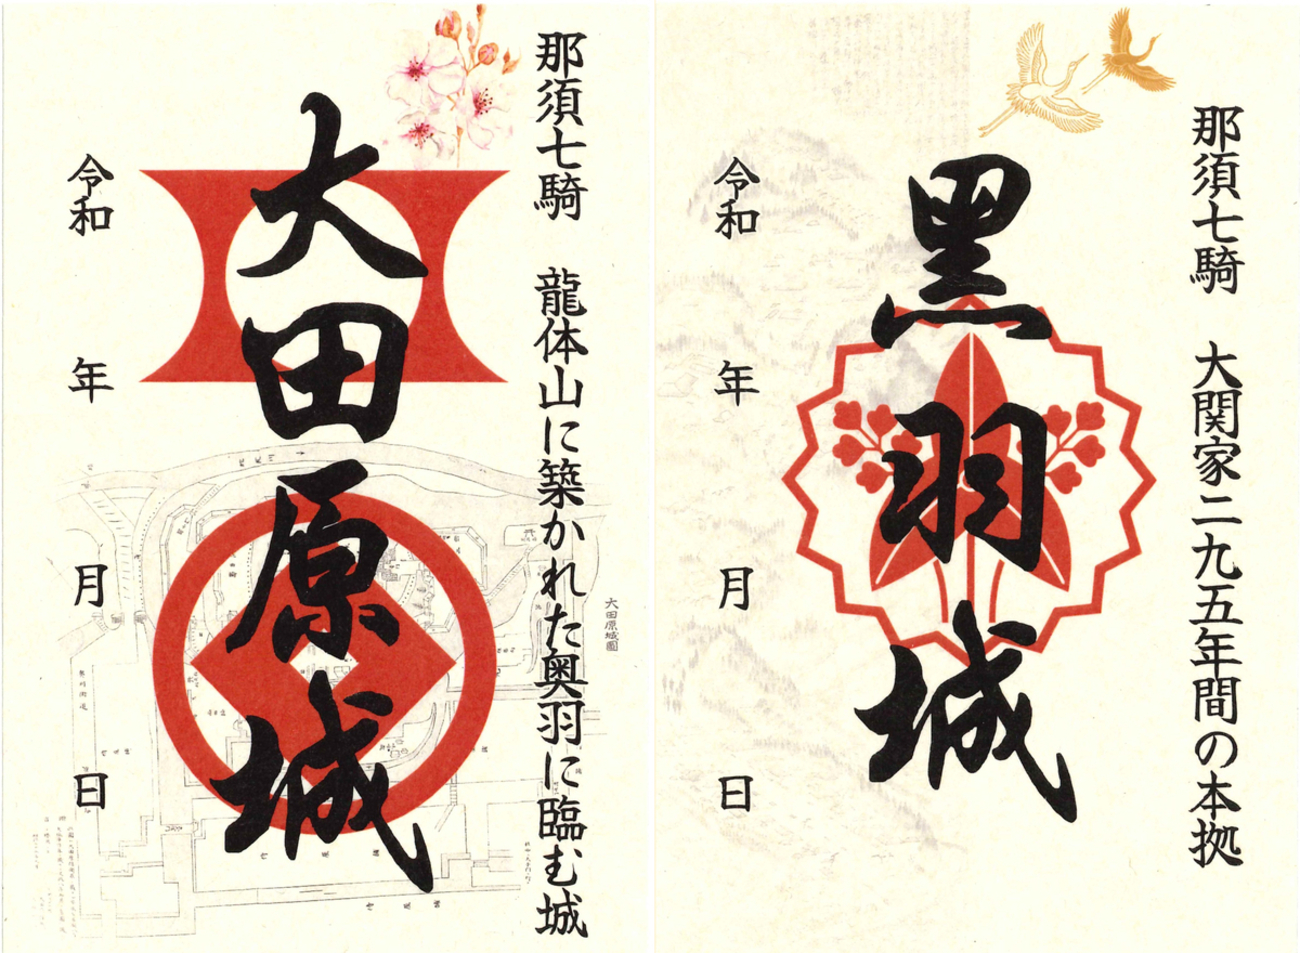 那須七騎 龍体山に築かれた奥羽に臨む城
大田原城
令和 年 月 日
大田原城圖
那須七騎 大関家二九五年間の本拠
黒羽城
令和 年 月 日